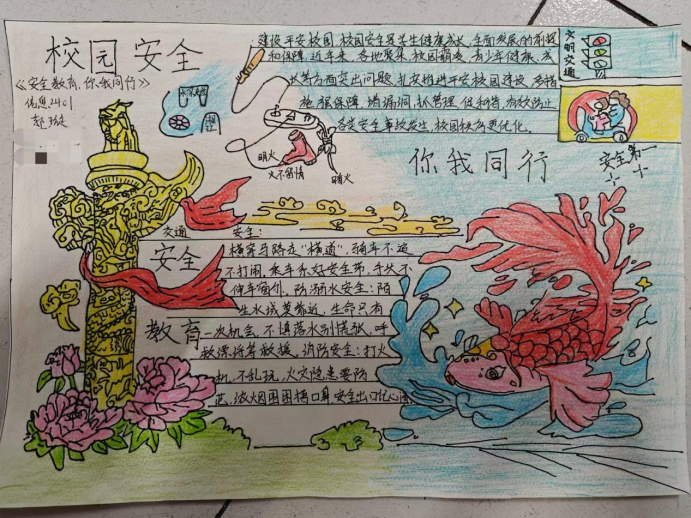 校园安全
《安全教育，你我同行》
信息2401
建设平安校园 校园安全是学生健康成长，全面发展的前提
和保障，近年来，各地聚集校园霸凌，青少年健康成
长等方面突出问题，扎实推进平安校园建设，多措
施强保障，堵漏洞，抓管理，促和持，有效防止
各类安全事故发生，校园秩序更优化。
文明交通
明火
火不留情
暗火
你我同行
安全第一
交通安全：
安全
教育
横穿马路走"横道"，骑车不追
不打闹，乘车系好安全带，手头不
伸车窗外，防溺水安全：陌
生水域莫靠近，生命只有
一次机会，不慎落水别慌张，呼
救漂浮等救援，消防安全：打火
机，不乱玩，火灾隐患要防
范，浓烟困困捂口鼻 安全出口忆心